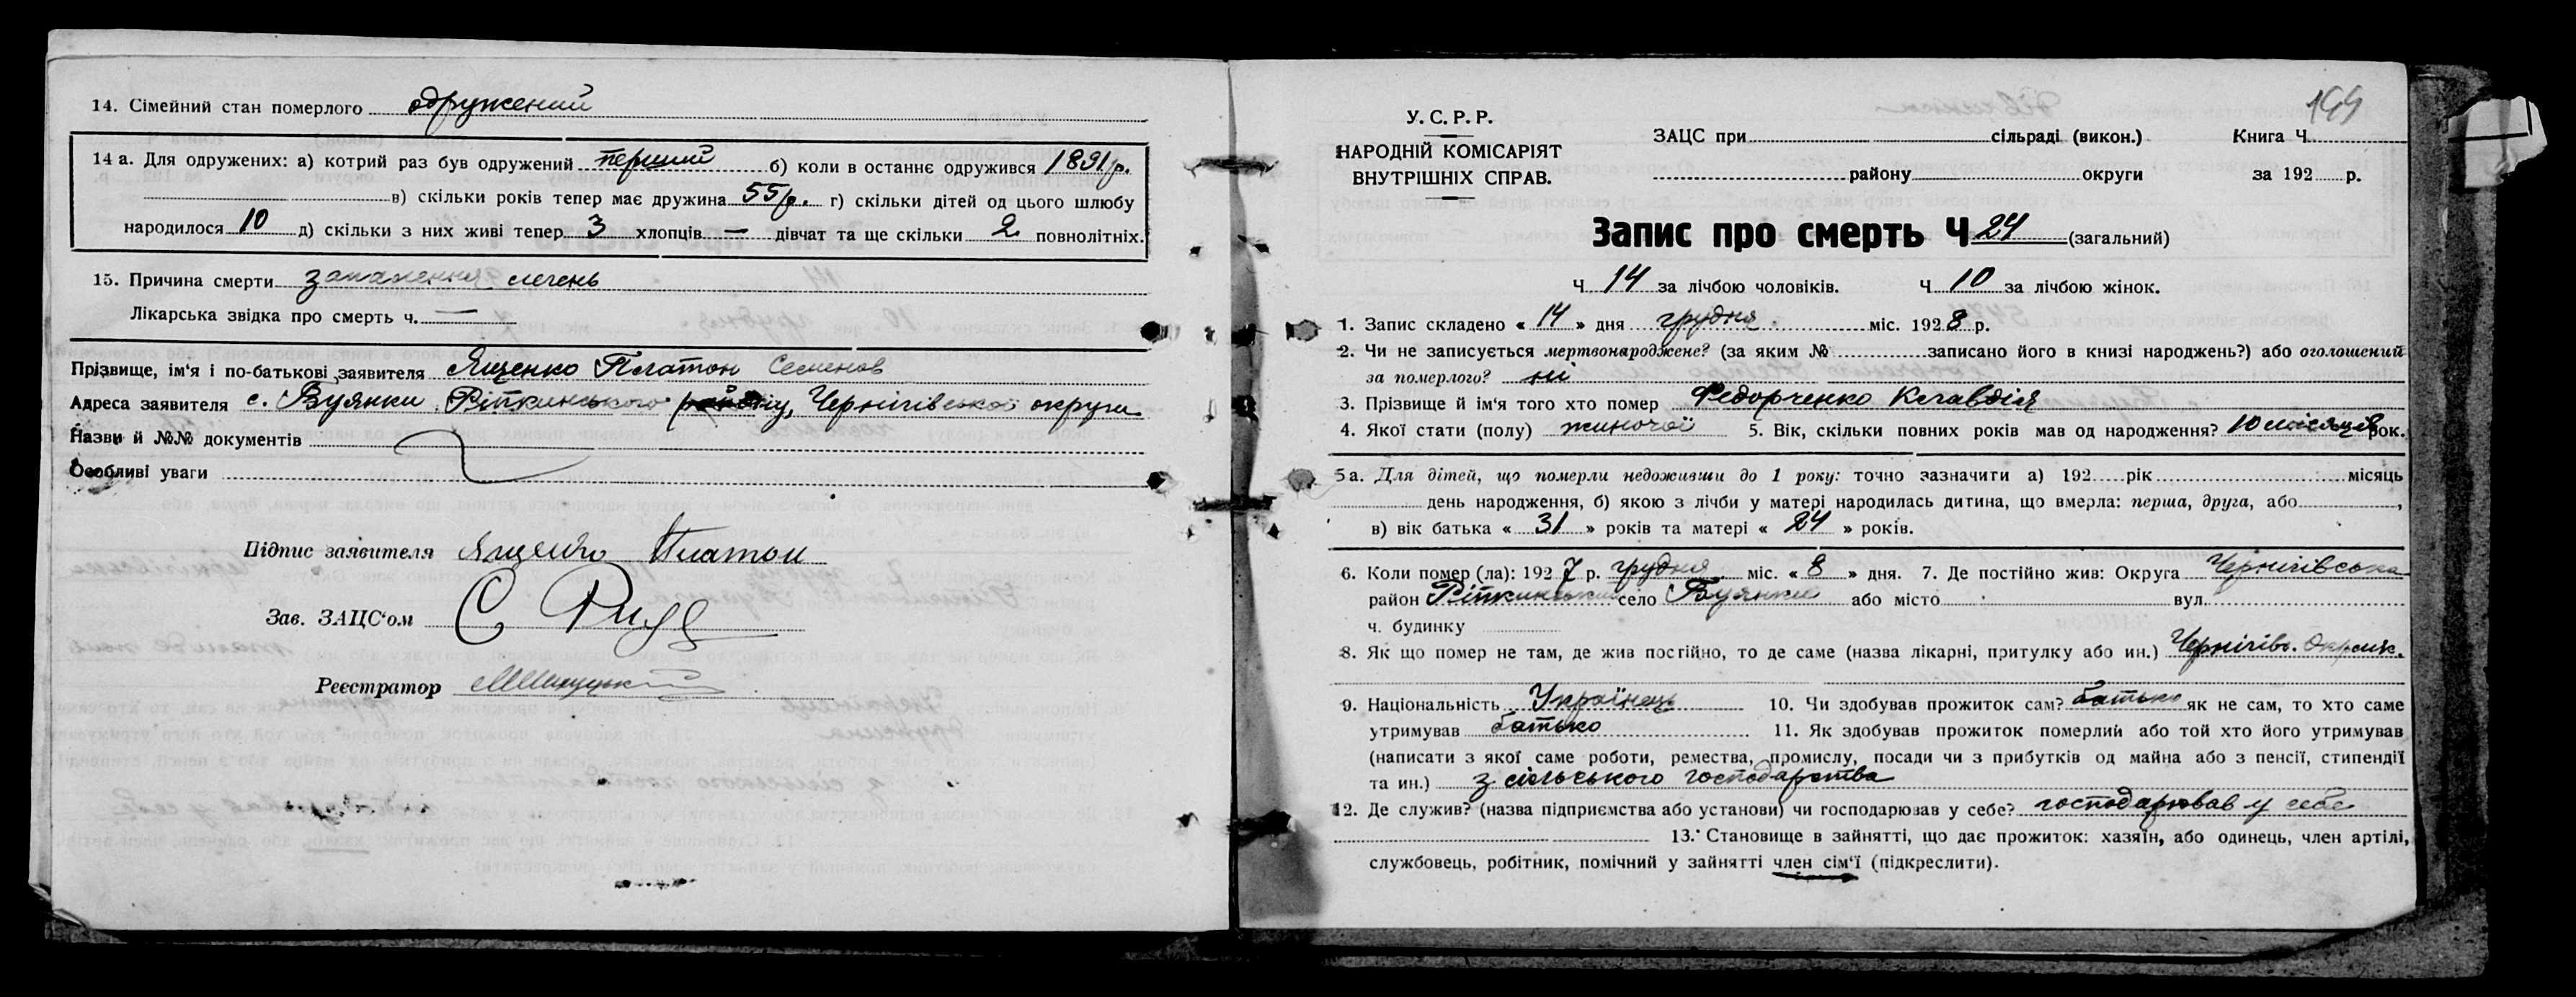 14. Сімейний стан померлого одружений
14 а. Для одружених: а) котрий раз був одружений перший б) коли в останнє одружився 1891 р.
в) скільки років тепер має дружина 55 р. г) скільки дітей од цього шлюбу
народилося 10 д) скільки з них живі тепер 3 хлопців — дівчат та ще скільки 2 повнолітніх.
15. Причина смерти запалення легень
Лікарська звідка про смерть ч. —
Прізвище, ім'я і по-батькові заявителя Ященко Платон Семенов
Адреса заявителя с. Буянки Ріпкинського району, Чернігівської округи
Назви й №№ документів
Особливі уваги
Підпис заявителя Ященко Платон
Зав. ЗАЦС'ом
Реєстратор
199
У. С. Р. Р.
НАРОДНІЙ КОМІСАРІЯТ
ВНУТРІШНІХ СПРАВ.
ЗАЦС при сільраді (викон.) Книга Ч.
району округи за 192 р.
Запис про смерть Ч 24 (загальний)
Ч 14 за лічбою чоловіків. Ч 10 за лічбою жінок.
1. Запис складено « 14 » дня грудня міс. 1928 р.
2. Чи не записується мертвонароджене? (за яким № записано його в книзі народжень?) або оголошений
за померлого? ні
3. Прізвище й ім'я того хто помер Федорченко Клавдія
4. Якої стати (полу) жиночої 5. Вік, скільки повних років мав од народження? 10 місяців рок.
5 а. Для дітей, що померли недоживши до 1 року: точно зазначити а) 192 рік місяць
день народження, б) якою з лічби у матері народилась дитина, що вмерла: перша, друга, або ,
в) вік батька « 31 » років та матері « 24 » років.
6. Коли помер (ла): 1927 р. грудня міс. « 8 » дня. 7. Де постійно жив: Округа Чернігівська
район Ріпкинський село Буянки або місто вул.
ч. будинку
8. Як що помер не там, де жив постійно, то де саме (назва лікарні, притулку або ин.) Чернігів.
9. Національність Українець 10. Чи здобував прожиток сам? батько як не сам, то хто саме
утримував батько 11. Як здобував прожиток померлий або той хто його утримував
(написати з якої саме роботи, ремества, промислу, посади чи з прибутків од майна або з пенсії, стипендії
та ин.) з сільського господарства
12. Де служив? (назва підприємства або установи) чи господарював у себе? господарював у себе
13. Становище в зайнятті, що дає прожиток: хазяїн, або одинець, член артілі,
службовець, робітник, помічний у зайнятті член сім'ї (підкреслити).